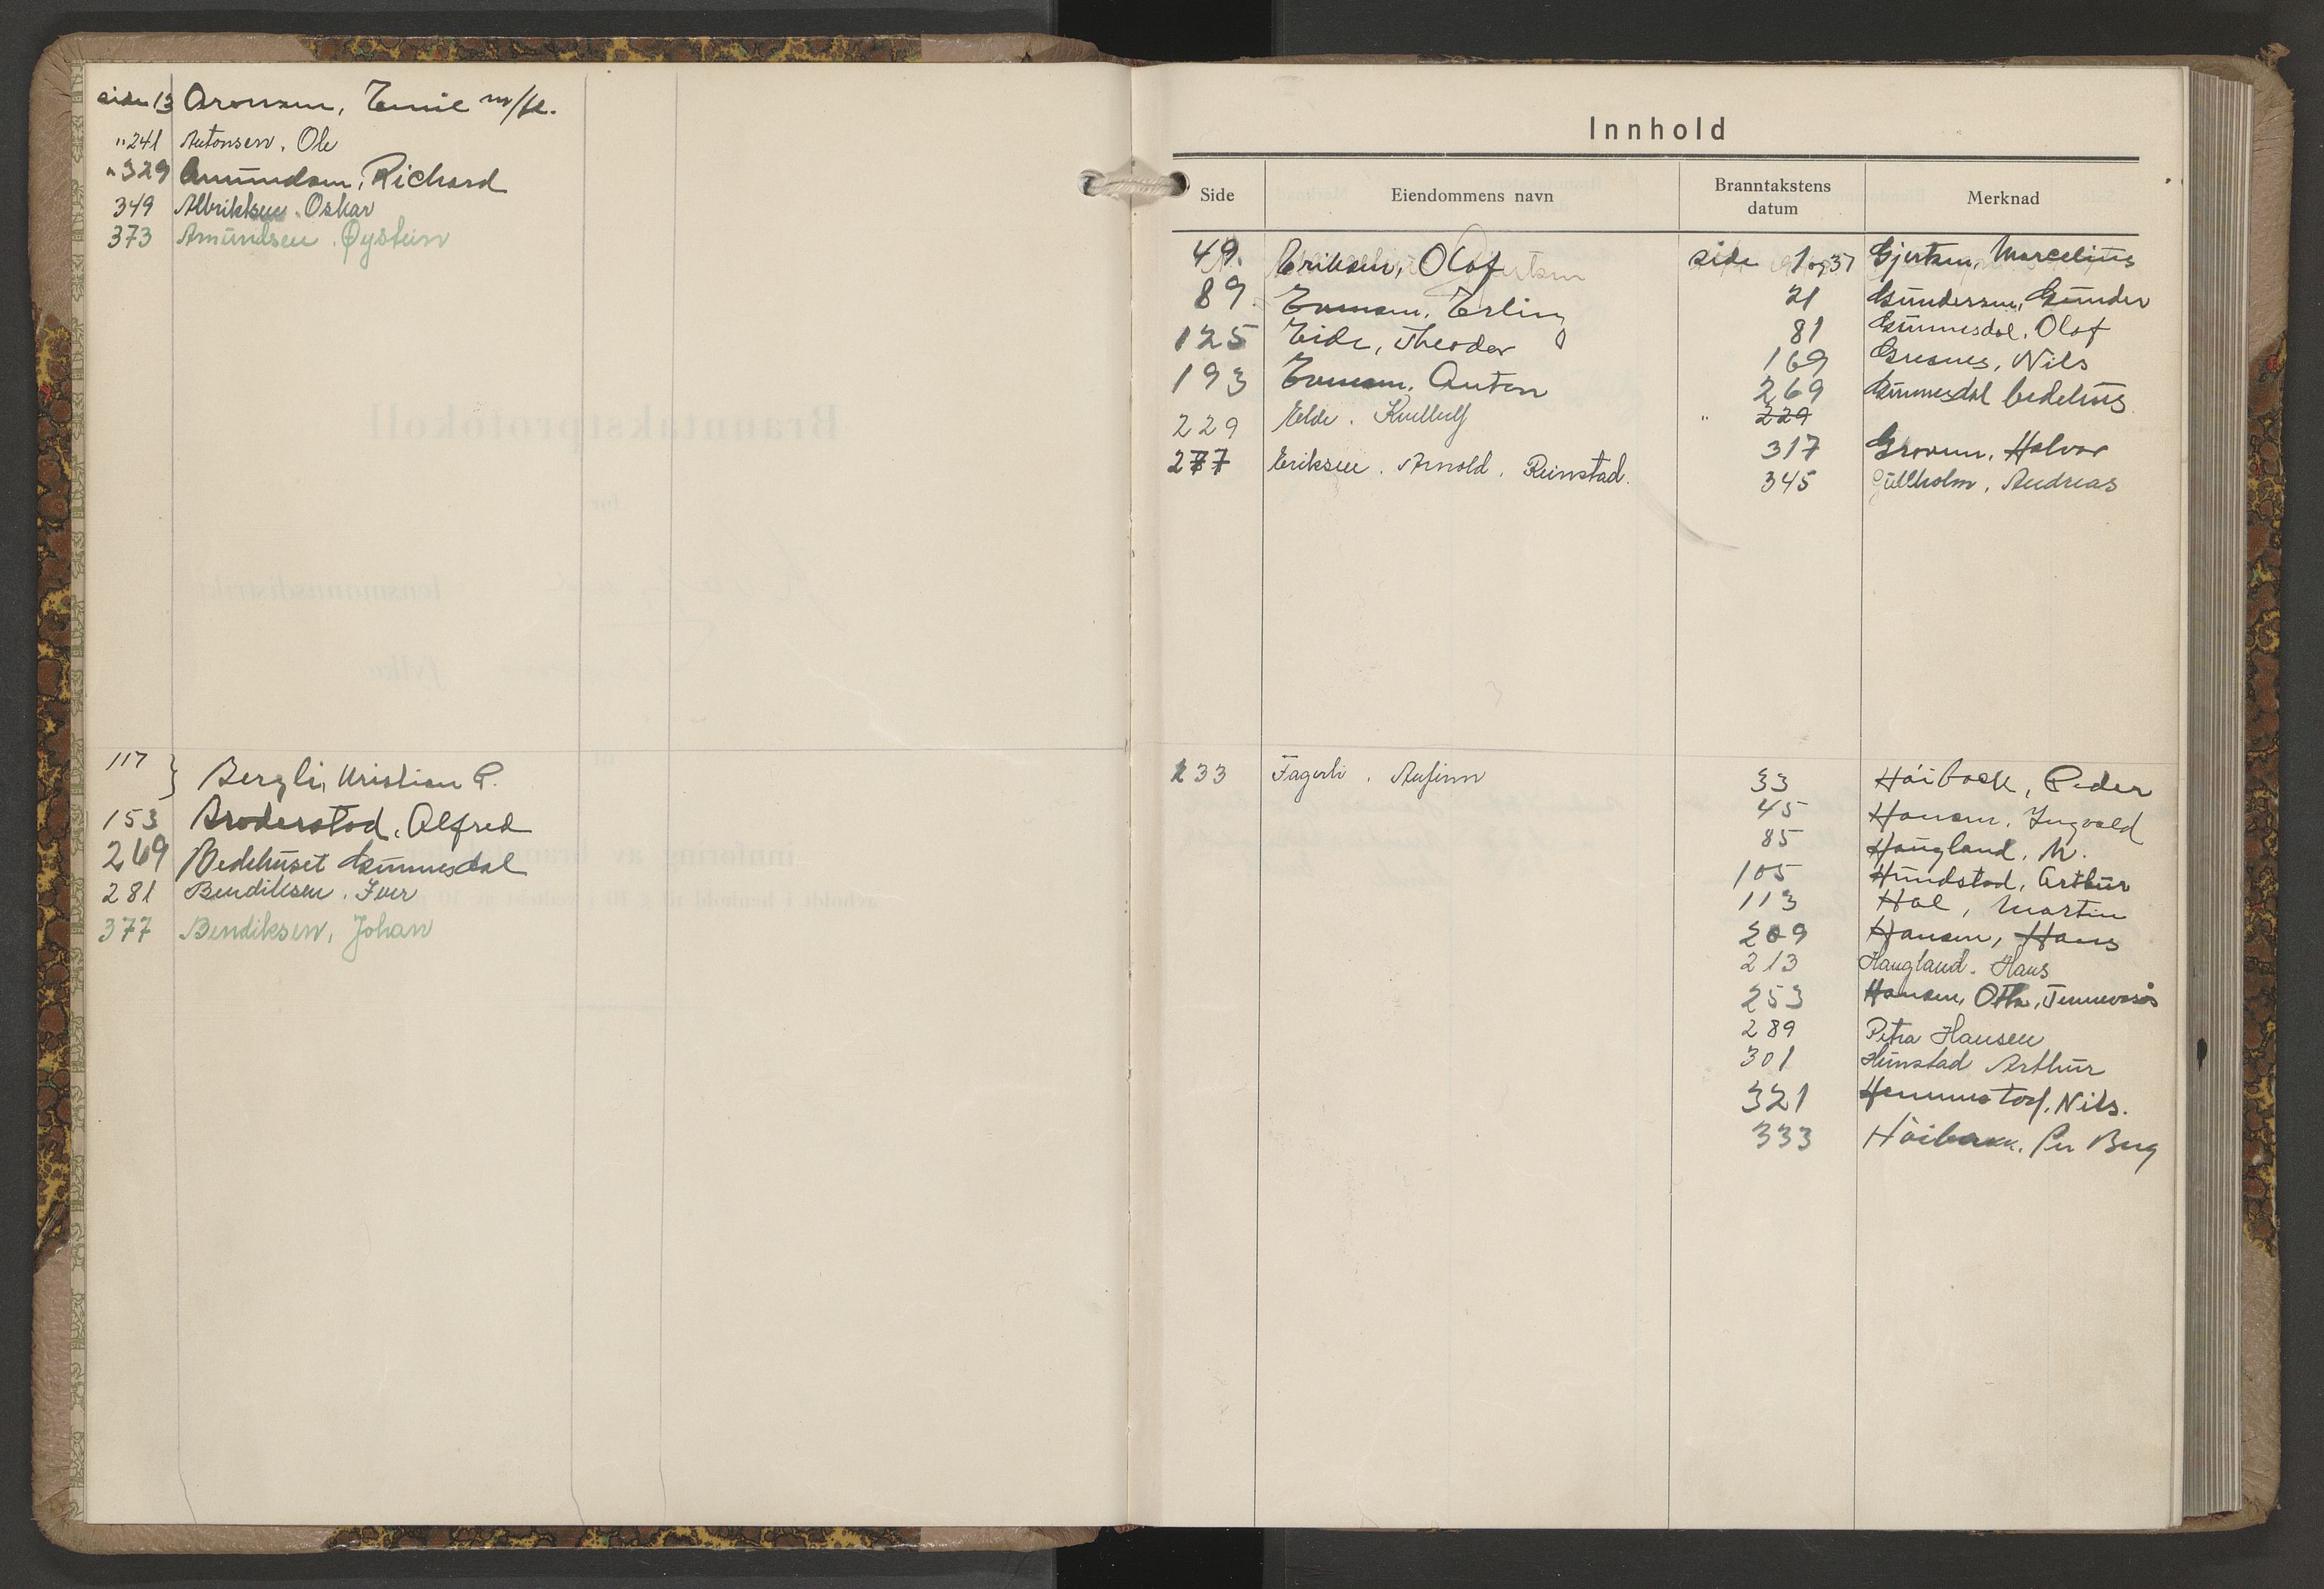 side 13 Aronsen, Emil m/fl.
" 241 Antonsen, Ole
" 329 Amundsen, Richard
349 Albriktsen. Oskar
373 Amundsen. Øystein
117 } Bergli, Kristian P.
153 Broderstad, Alfred
269 Bedehuset Gunnesdal
281 Bendiksen. Iver
377 Bendiksen, Johan
Innhold
Side Eiendommens navn Branntakstens datum Merknad
49. Eriksen, Olaf
89. Evensen, Erling
125 Eide, Theodor
193 Evensen. Anton
229 Elde. Kvellulf
277 Eriksen. Arnold. Reinstad.
side 1 og 37 Gjertsen, Marcelius
21 Gundersen, Gunder
81 Gunnesdal, Olaf
169 Gresnes, Nils
269 Gunnesdal bedehus
" 229
317 Groven, Halvor
345 Gullholm, Andreas
233 Fagerli. Anfinn
33 Høibakk, Peder
45 Hansen, Ingvald
85 Haugland, M.
105 Hundstad, Arthur
113 Hal, Martin
209 Hansen, Hans
213 Haugland. Hans
253 Hansen, Otto, Tennevasås
289 Petra Hansen
301 Hunstad Arthur
321 Hemmestad, Nils.
333 Høibakk, Per Berg